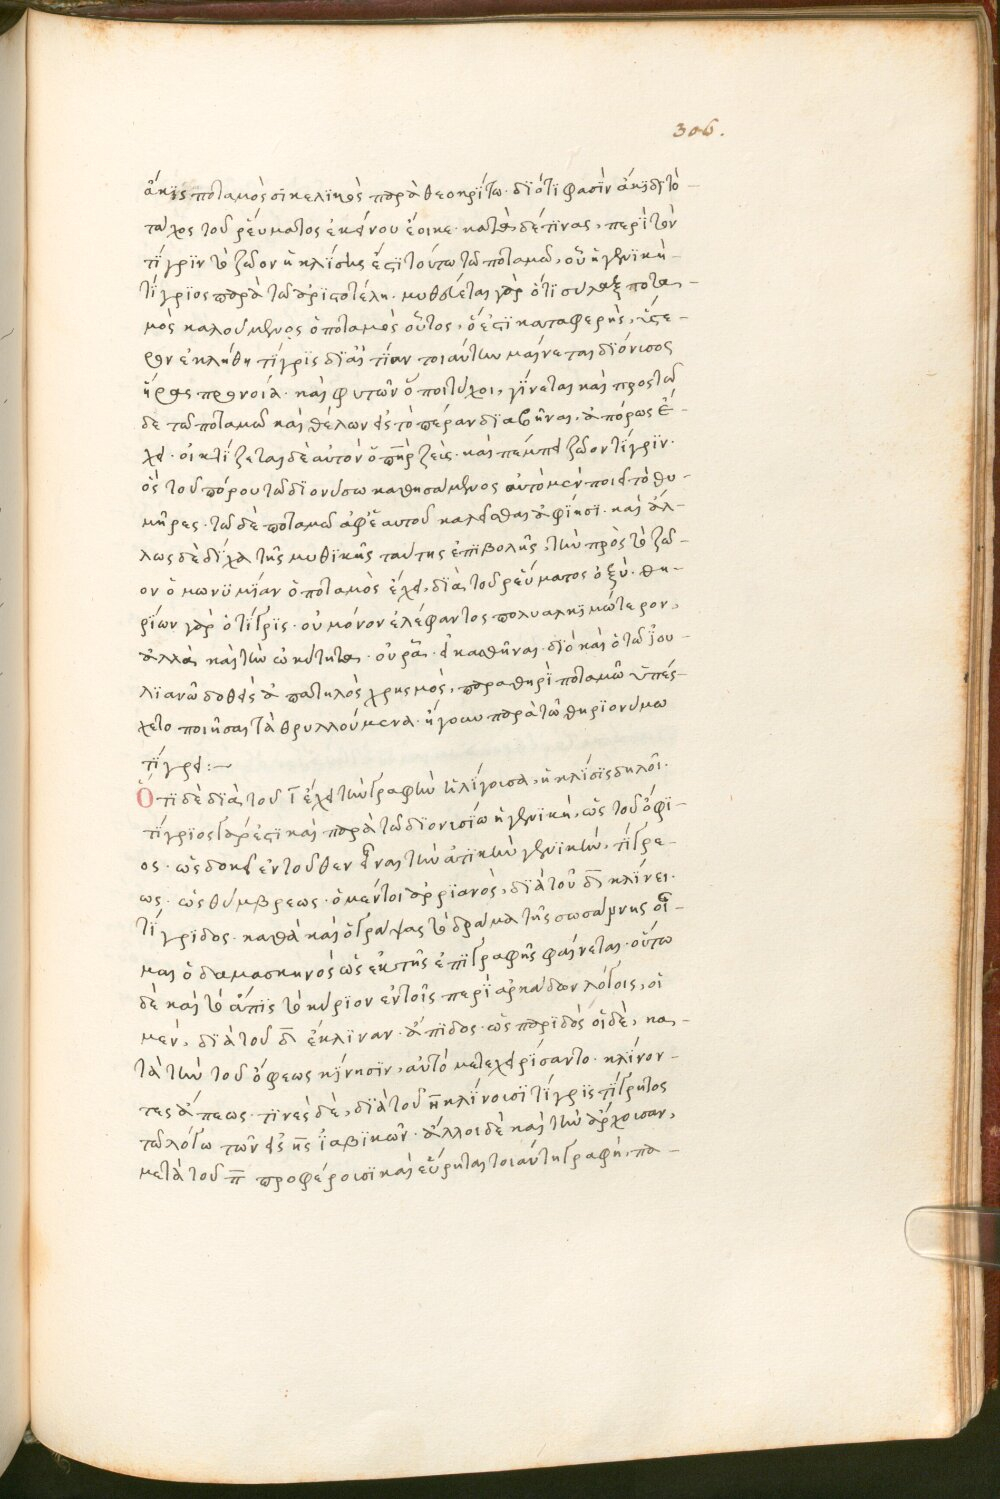 306.
ἄκις ποταμὸς σικελικὸς παρὰ θεοκρίτω· διότι φασὶν ἀκίδι τὸ
τάχος τοῦ ῥεύματος ἐκείνου ἔοικε· κατὰ δέ τινας, περὶ τὸν
τίγριν τὸ ζῶον ἡ κλίσις ἐστὶ τούτω τῶ ποταμῶ, οὗ ἡ γενικὴ
τίγριος παρὰ τῶ ἀριστοτέλη· μυθεύεται γὰρ ὅτι σύλαξ ποτα
μὸς καλούμενος ὁ ποταμὸς οὗτος, ὅ ἐστι καταφερὴς, ὕστε
ρον ἐκλήθη τίγρις δι' αἰτίαν τοιαύτην μαίνεται διόνισος
ἥρας προνοία· καὶ φυτῶν ὅποι τύχοι, γίνεται καὶ πρὸς τῶ
δε τῶ ποταμῶ καὶ θέλων εἰς τὸ πέραν διαβῆναι, ἀπόρως ἔ
χει· οἰκτίζεται δὲ αὐτὸν ὁ πὴρ ζεὺς· καὶ πέμπει ζῶον τίγριν·
ὃς τοῦ πόρου τῶ διονύσω καθησάμενος αὐτὸ μὲν ποιεῖ τὸ θυ
μῆρες· τῶ δὲ ποταμῶ ἀφ' ἑαυτοῦ καλεῖσθαι ἀφίησι· καὶ ἄλ
λως δὲ δίχα τῆς μυθικῆς ταύτης ἐπιβολῆς, τὴν πρὸς τὸ ζῶ
ον ὁμωνυμίαν ὁ ποταμὸς ἔχει, διὰ τοῦ ῥεύματος ὀξύ· θη
ρίων γὰρ ὁ τίγρις· οὐ μόνον ἐλέφαντος πολυαλκιμώτερον,
ἀλλὰ καὶ τὴν ὠκύτητα· διὸ καὶ ὁ τῶ ἰου
λιανῶ δοθεὶς ἀπατηλὸς χρησμὸς, παρὰ θηρὶ ποταμῶ ὑπέσ
χετο ποιῆσαι τὰ θρυλλούμενα· ἤγουν παρὰ τῶ θηριονύμω
τίγρει:~
Ὅτι δὲ διὰ τοῦ ῑ ἔχει τὴν γραφὴν ἡ λήγουσα, ἡ κλίσις δηλοῖ·
τίγριος γάρ ἐστι καὶ παρὰ τῶ διονισίω ἡ γενικὴ, ὡς τοῦ ὄφι
ος· ὡς δοκεῖ ἐντοῦθεν εἶναι τὴν ἀτικὴν γενικὴν, τίγρε
ως· ὡς θύμβρεως· ὁ μέντοι ἀρριανὸς, διὰ τοῦ δ̅ κλίνει·
τίγριδος· καθὰ καὶ ὁ γράψας τὸ δρᾶμα τῆς σωσάμνης οἶ
μαι ὁ δαμασκηνὸς ὡς ἐκ τῆς ἐπιγραφῆς φαίνεται· οὕτω
δὲ καὶ τὸ ἄπις τὸ κύριον ἐν τοῖς περὶ ἀρκάδων λόγοις, οἱ
μὲν, διὰ τοῦ δ̅ ἔκλιναν· ἄπιδος· ὡς παριδὸς οἱ δὲ, κα
τὰ τὴν τοῦ ὄφεως κίνησιν, αὐτὸ μετεχειρίσαντο· κλίνον
τες ἄπεως· τινὲς δὲ, διὰ τοῦ η̅ κλίνουσι τίγρις τίγρητος
τῶ λόγω τῶν εἰς ης ἰαβικῶν· ἄλλοι δὲ καὶ τὴν ἄρχουσαν,
μετὰ τοῦ π̅ προφέρουσι καὶ εὕρηται τοιαύτη γραφὴ, πα